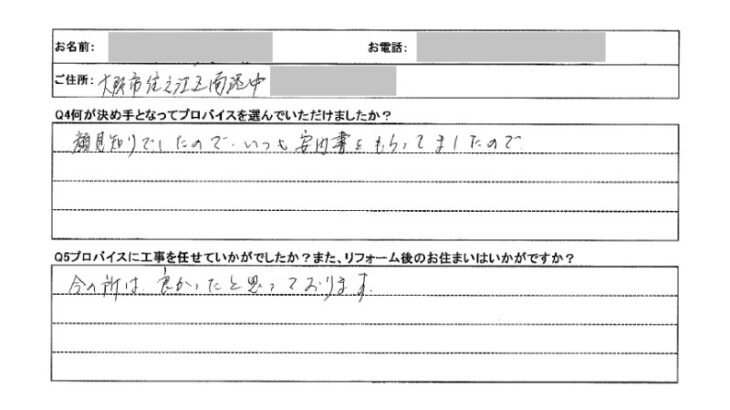 お名前: お電話:
ご住所: 大阪市住之江区南港中
Q4何が決め手となってプロバイスを選んでいただけましたか?
顔見知りでしたので、いつも案内書をもらってましたので
Q5プロバイスに工事を任せていかがでしたか?また、リフォーム後のお住まいはいかがですか?
今の所は、良かったと思っております。